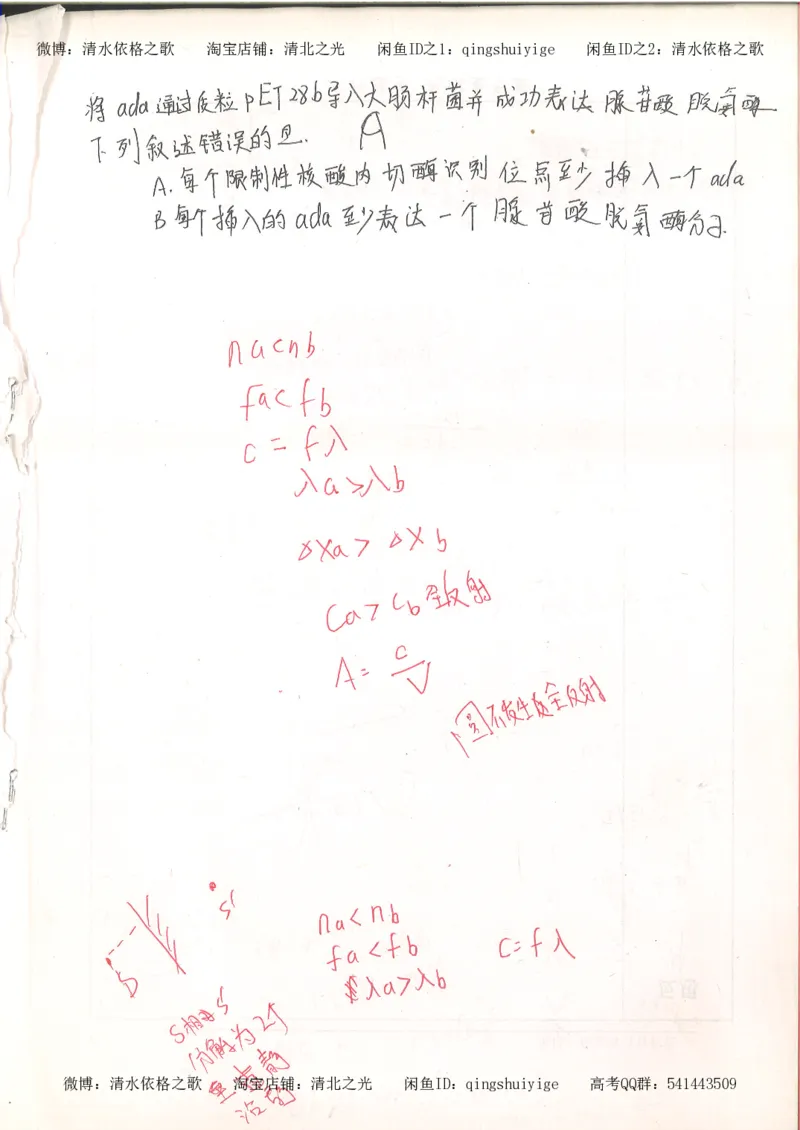 微博：清水依格之歌 淘宝店铺：清北之光 闲鱼ID之1：qingshuiyige 闲鱼ID之2：清水依格之歌
将ada通过质粒pET28b导入大肠杆菌并成功表达腺苷酸脱氨酶
下列叙述错误的是. A
A.每个限制性核酸内切酶识别位点至少插入一个ada
B每个插入的ada至少表达一个腺苷酸脱氨酶分子.
na<nb
fa<fb
c=fλ
λa>λb
△Xa>△Xb
Ca>Cb 全反射
A=c/V
圆不发生全反射
S'
S
na<nb
fa<fb c=fλ
λa>λb
S相
为2个
微博：清水依格之歌 淘宝店铺：清北之光 闲鱼ID：qingshuiyige 高考QQ群：541443509